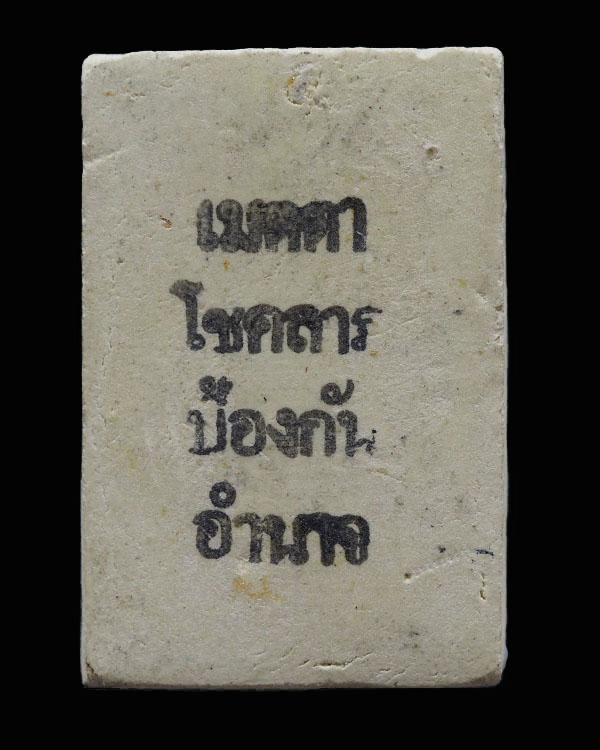 เมตตา
โชคลาภ
ป้องกัน
อำนาจ